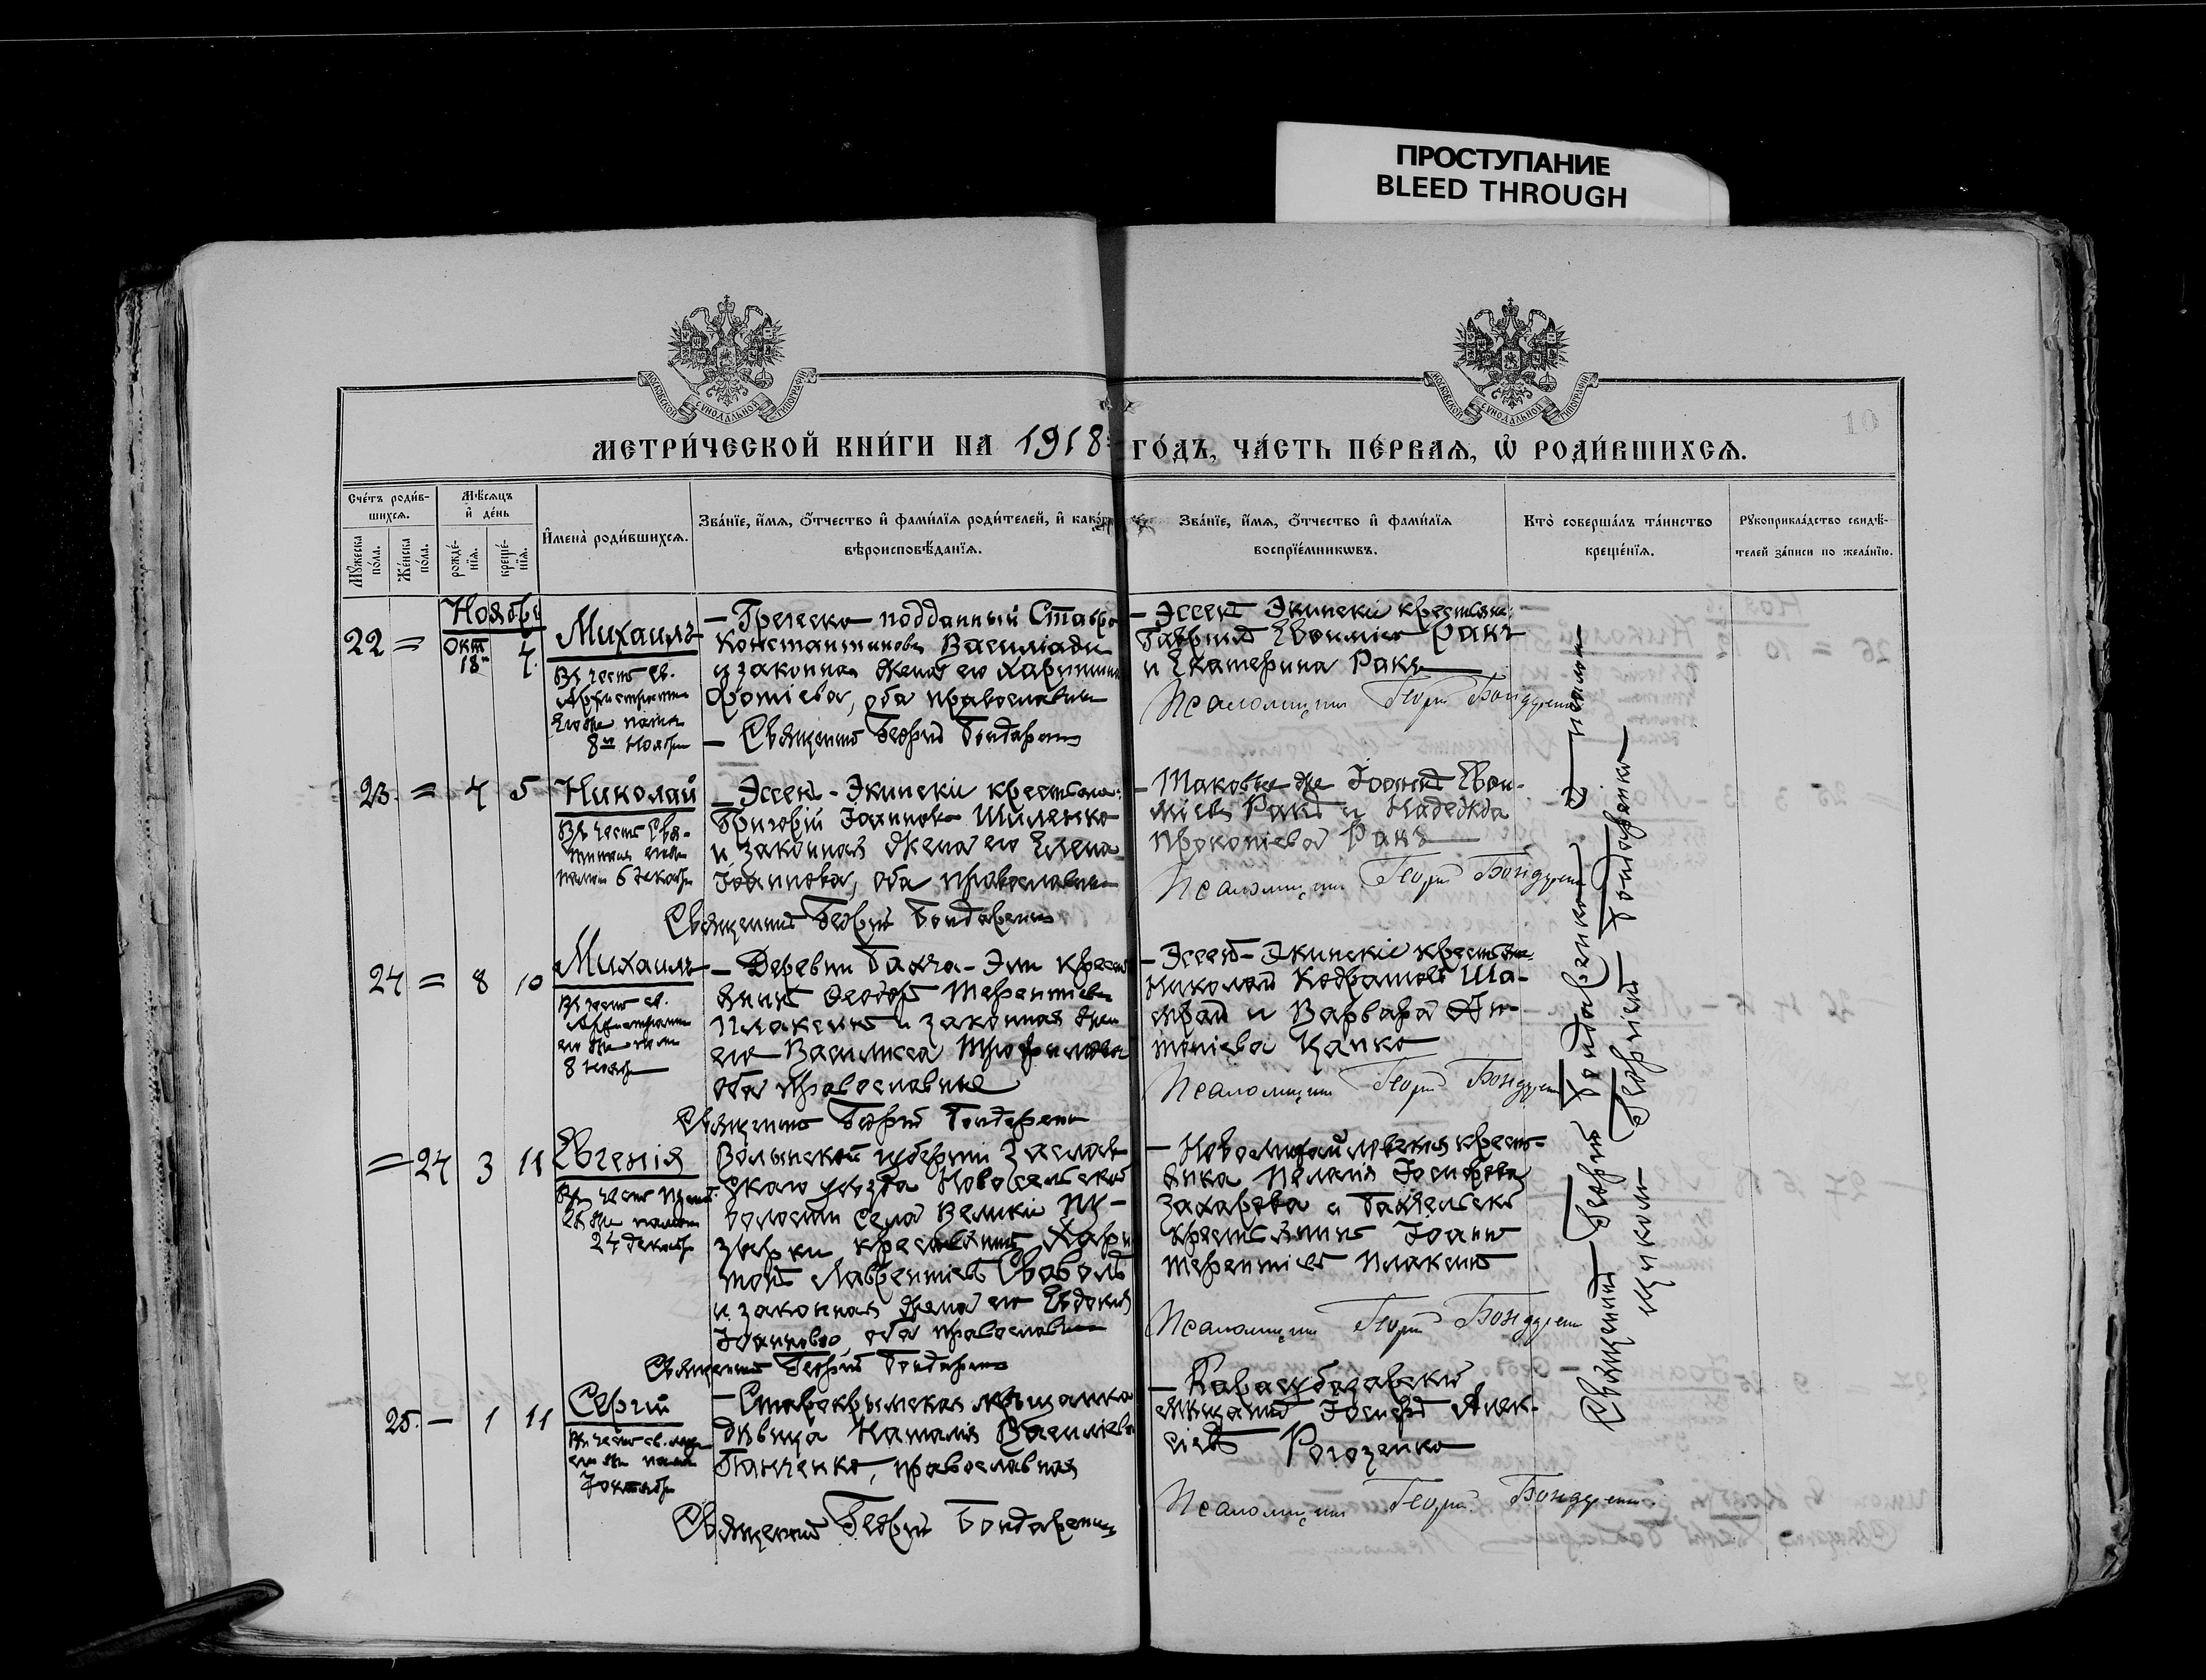 ПРОСТУПАНИЕ
BLEED THROUGH
МОСКОВСКОЙ СѴНОДАЛЬНОЙ ТИПОГРАФІИ
МОСКОВСКОЙ СѴНОДАЛЬНОЙ ТИПОГРАФІИ
10
МЕТРИ́ЧЕСКОЙ КНИ́ГИ НА 1918 ГО́ДЪ, ЧА́СТЬ ПЕ́РВАЯ, Ѡ҆ РОДИ́ВШИХСЯ.
Сче́тъ роди́в-
шихся.
Мꙋ́жеска по́ла.
Же́нска по́ла.
Мѣ́сяцъ
и҆ де́нь
рожде́-
нїя.
креще́-
нїя.
И҆мена̀ роди́вшихся.
Зва́нїе, и҆́мя, ѻ҆́тчество и҆ фами́лїя роди́телей, и҆ како́гѡ
вѣроисповѣ́данїя.
Зва́нїе, и҆́мя, ѻ҆́тчество и҆ фами́лїя
воспрїе́мникѡвъ.
Кто̀ соверша́лъ та́инство
креще́нїя.
Рꙋкоприкла́дство свидѣ́-
телей за́писи по жела́нїю.
Ноябрь
22 = Окт 18 7. Михаилъ
Въ честь св.
8го Ноября
— Греческо-подданный Ставро
Константиновъ Василіади
и законная жена его Харитина
Фотіева, оба православные
— Священникъ Георгій Бондаренко
— Эссенъ Экинскіе крестьяне:
Гавріилъ Евфиміевъ Ракъ
и Екатерина Ракъ
Псаломщикъ Георгій Бондаренко
23. = 4 5 Николай
Въ честь Свя-
тителя
память 6 декабря
— Эссенъ-Экинскіе крестьяне:
Григорій Іоанновъ Шиленко
и законная жена его Елена
Іоаннова, оба православные
Священникъ Георгій Бондаренко
— Таковые же Іоаннъ Евфи-
міевъ Ракъ и Надежда
Прокопіева Ракъ
Псаломщикъ Георгій Бондаренко
24 = 8 10 Михаилъ
Въ честь св.
8 ноября
— Деревни Бахча-Эли крестья
янинъ Феодоръ Терентіевъ
Плаксинъ и законная жена
его Василиса Трофимова
оба православные
Священникъ Георгій Бондаренко
— Эссенъ-Экинскіе крестьяне:
Николай Кодратовъ Ша-
и Варвара Ан-
тоніева Цапко
Псаломщикъ Георгій Бондаренко
= 24 3 11 Евгенія
24 декабря
Волынской губерніи Заслав-
скаго уѣзда Новосельской
волости села Великіе Пу-
зырки крестьянинъ Хари
тонъ Лаврентіевъ Своволь
и законная жена его Евдокія
Іоаннова, оба православные
Священникъ Георгій Бондаренко
крестья-
янка Пелагія Іосифова
Захарова и
крестьянинъ Іоаннъ
Терентіевъ Плаксинъ
Псаломщикъ Георгій Бондаренко
25. — 1 11 Сергій
7 октября
— Старокрымская мѣщанка
дѣвица Наталія Васильева
Панченко, православная
Священникъ Георгій Бондаренко
— Карасубазарскій
мѣщанинъ Іосифъ Алек-
сіевъ Рогозенко
Псаломщикъ Георгій Бондаренко.
Священникъ Георгій Бондаренко съ псалом-
щикомъ Георгіемъ Бондаренко